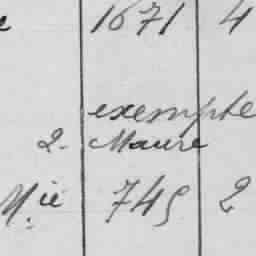 1671 4
exempte
2. Maure
M.ie 745 2